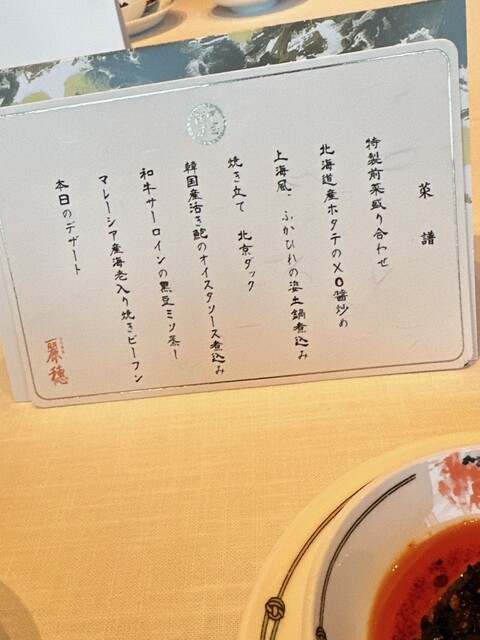 菜譜
特製前菜盛り合わせ
北海道産ホタテのXO醤炒め
上海風、ふかひれの姿土鍋煮込み
焼き立て 北京ダック
韓国産活き鮑のオイスタソース煮込み
和牛サーロインの黒豆ミソ蒸し
マレーシア産海老入り焼きビーフン
本日のデザート